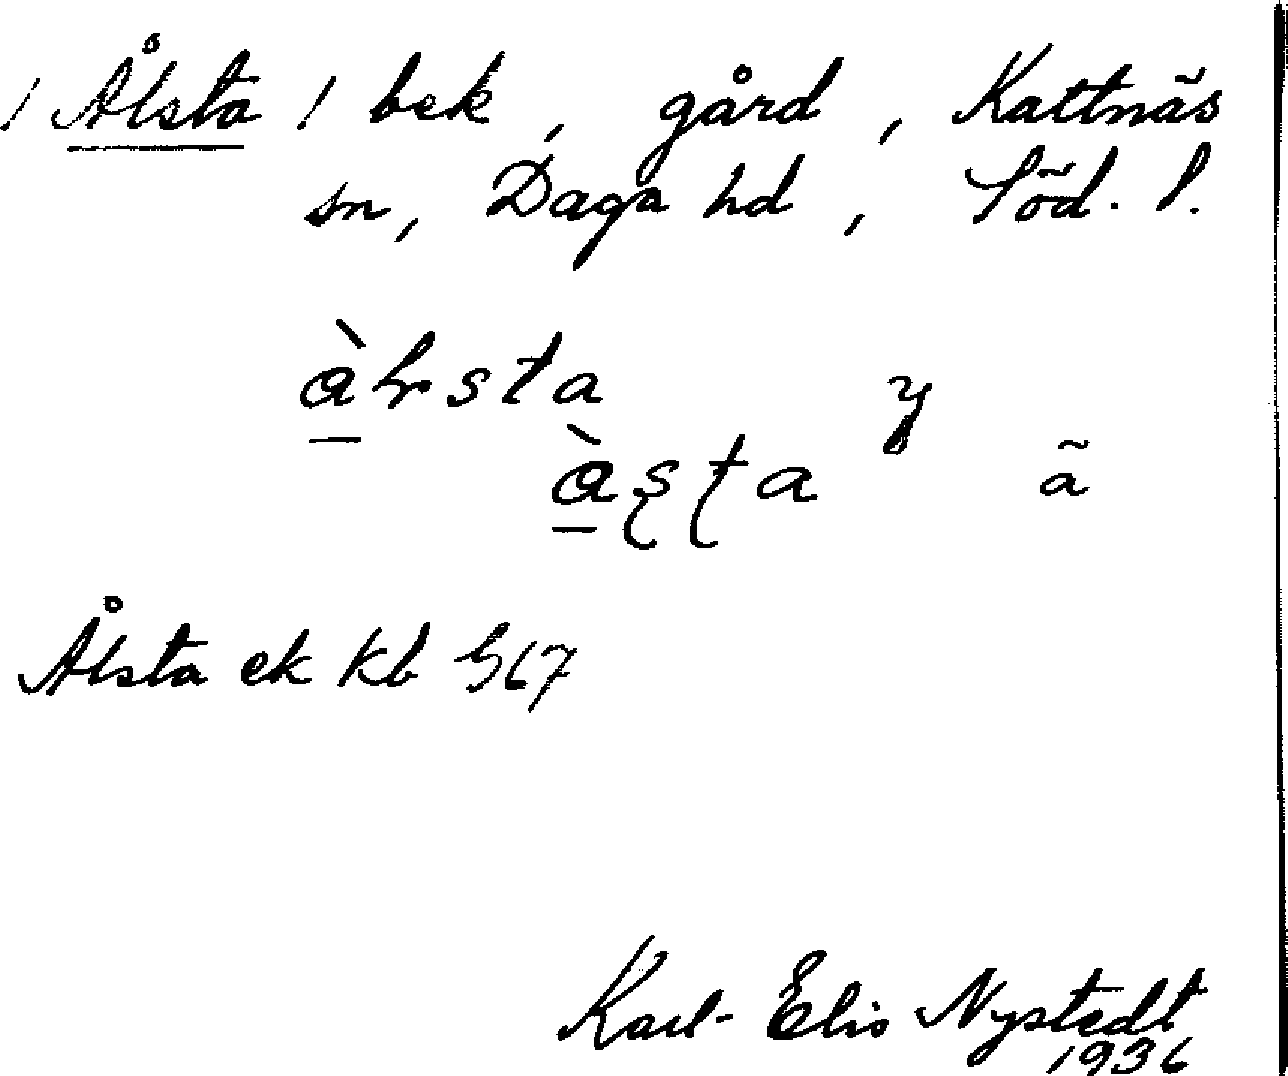 / Ålsta / bek, gård, Kattnäs
sn, Daga hd, Söd. l.
àlsta y
àṣṭa ã
Ålsta ek kb 567
Karl-Elis Nystedt
1936